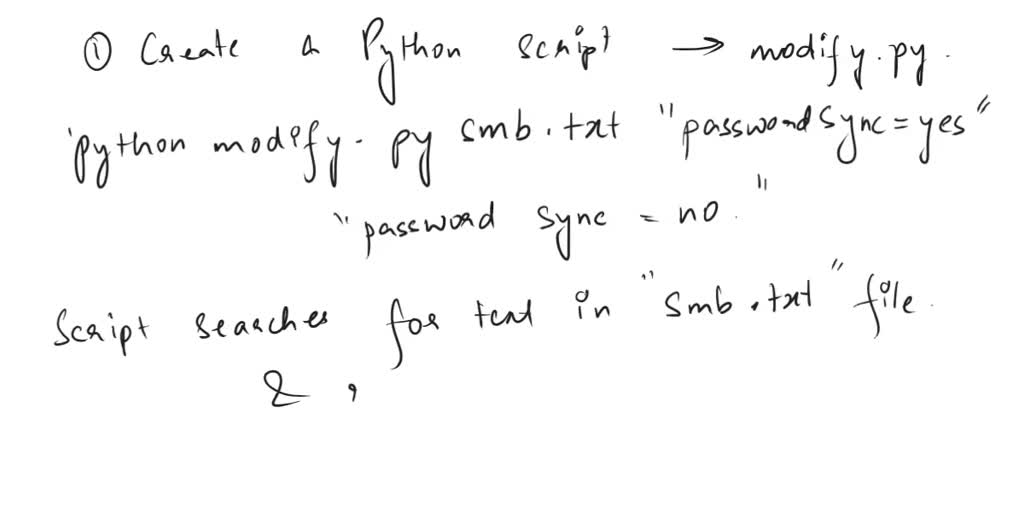 ① Create a Python script → modify.py.
'python modify.py smb.txt "password sync = yes"
"password sync = no."
Script searches for text in "smb.txt" file.
& ,